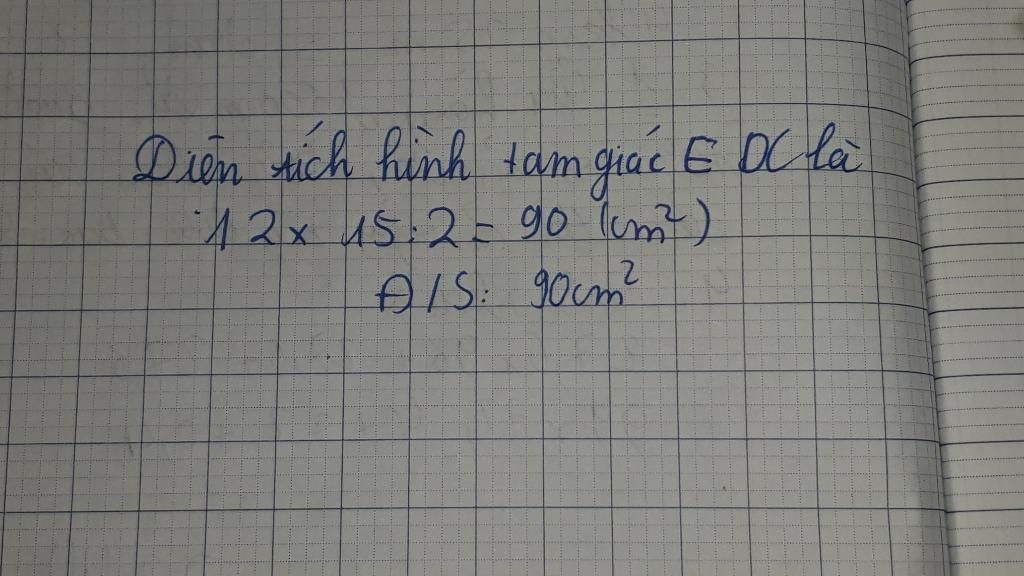 Diện tích hình tam giác EDC là
12 x 15 : 2 = 90 (cm²)
Đ/S: 90cm²